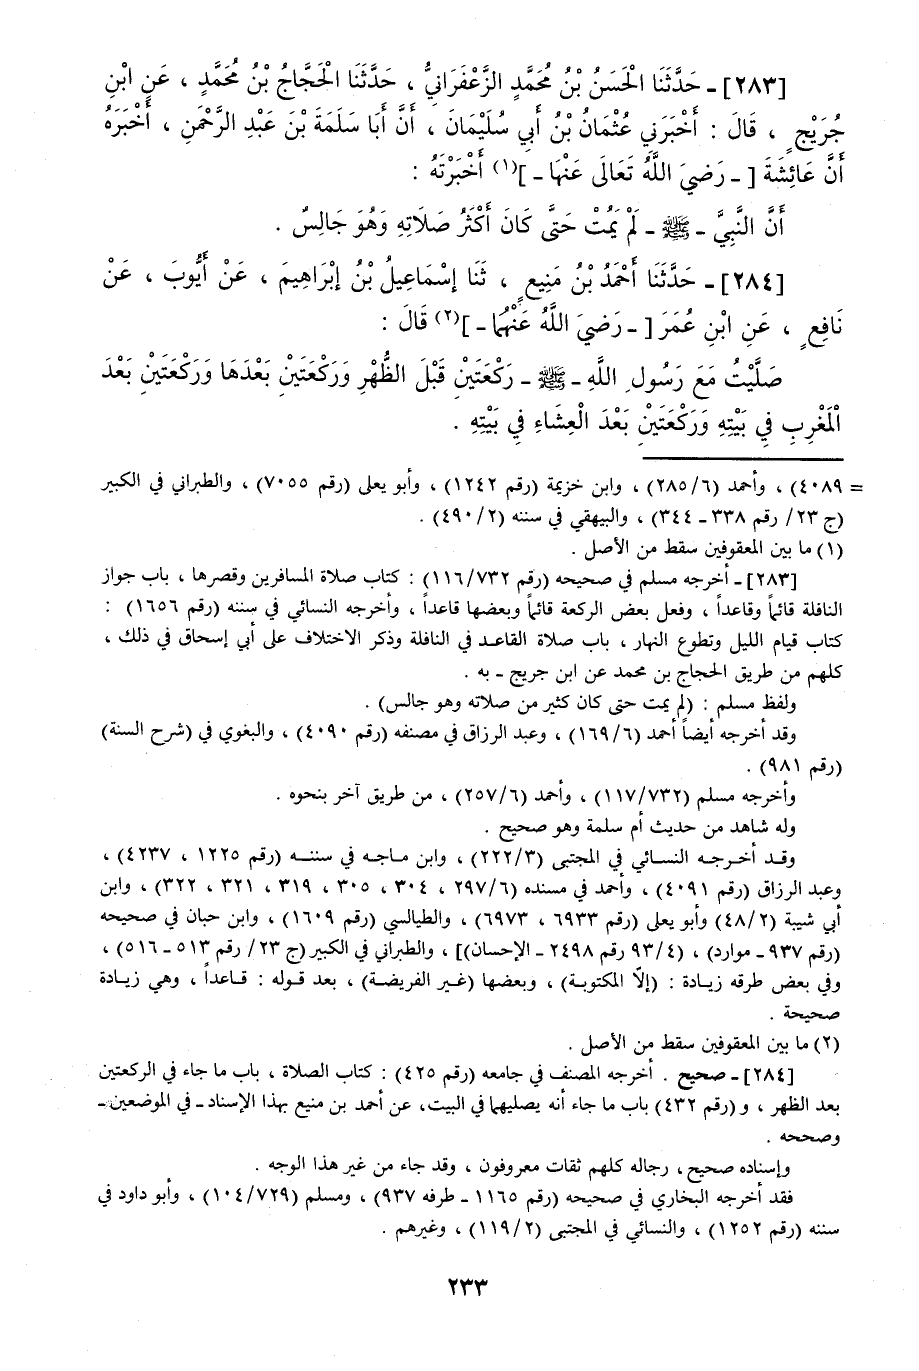 [٢٨٣] ـ حَدَّثَنَا الْحَسَنُ بْنُ مُحَمَّدٍ الزَّعْفَرَانِيُّ ، حَدَّثَنَا الْحَجَّاجُ بْنُ مُحَمَّدٍ ، عَنِ ابْنِ
جُرَيْجٍ ، قَالَ : أَخْبَرَنِي عُثْمَانُ بْنُ أَبِي سُلَيْمَانَ ، أَنَّ أَبَا سَلَمَةَ بْنَ عَبْدِ الرَّحْمٰنِ ، أَخْبَرَهُ
أَنَّ عَائِشَةَ [ ـ رَضِيَ اللَّهُ تَعَالَى عَنْهَا ـ ](١) أَخْبَرَتْهُ :
أَنَّ النَّبِيَّ ـ ﷺ ـ لَمْ يَمُتْ حَتَّى كَانَ أَكْثَرُ صَلَاتِهِ وَهُوَ جَالِسٌ .
[٢٨٤] ـ حَدَّثَنَا أَحْمَدُ بْنُ مَنِيعٍ ، ثَنَا إِسْمَاعِيلُ بْنُ إِبْرَاهِيمَ ، عَنْ أَيُّوبَ ، عَنْ
نَافِعٍ ، عَنِ ابْنِ عُمَرَ [ ـ رَضِيَ اللَّهُ عَنْهُمَا ـ ](٢) قَالَ :
صَلَّيْتُ مَعَ رَسُولِ اللَّهِ ـ ﷺ ـ رَكْعَتَيْنِ قَبْلَ الظُّهْرِ وَرَكْعَتَيْنِ بَعْدَهَا وَرَكْعَتَيْنِ بَعْدَ
الْمَغْرِبِ فِي بَيْتِهِ وَرَكْعَتَيْنِ بَعْدَ الْعِشَاءِ فِي بَيْتِهِ .
= ٤٠٨٩) ، وأحمد (٢٨٥/٦) ، وابن خزيمة (رقم ١٢٤٢) ، وأبو يعلى (رقم ٧٠٥٥) ، والطبراني في الكبير
(ج ٢٣/ رقم ٣٣٨ ـ ٣٤٤) ، والبيهقي في سننه (٤٩٠/٢) .
(١) ما بين المعقوفين سقط من الأصل .
[٢٨٣] ـ أخرجه مسلم في صحيحه (رقم ١١٦/٧٣٢) : كتاب صلاة المسافرين وقصرها ، باب جواز
النافلة قائماً وقاعداً ، وفعل بعض الركعة قائماً وبعضها قاعداً ، وأخرجه النسائي في سننه (رقم ١٦٥٦) :
كتاب قيام الليل وتطوع النهار ، باب صلاة القاعد في النافلة وذكر الاختلاف على أبي إسحاق في ذلك ،
كلهم من طريق الحجاج بن محمد عن ابن جريج ـ به .
ولفظ مسلم : (لم يمت حتى كان كثير من صلاته وهو جالس) .
وقد أخرجه أيضاً أحمد (١٦٩/٦) ، وعبد الرزاق في مصنفه (رقم ٤٠٩٠) ، والبغوي في (شرح السنة)
(رقم ٩٨١) .
وأخرجه مسلم (١١٧/٧٣٢) ، وأحمد (٢٥٧/٦) ، من طريق آخر بنحوه .
وله شاهد من حديث أم سلمة وهو صحيح .
وقد أخرجه النسائي في المجتبى (٢٢٢/٣) ، وابن ماجه في سننه (رقم ١٢٢٥ ، ٤٢٣٧) ،
وعبد الرزاق (رقم ٤٠٩١) ، وأحمد في مسنده (٢٩٧/٦ ، ٣٠٤ ، ٣٠٥ ، ٣١٩ ، ٣٢١ ، ٣٢٢) ، وابن
أبي شيبة (٤٨/٢) وأبو يعلى (رقم ٦٩٣٣ ، ٦٩٧٣) ، والطيالسي (رقم ١٦٠٩) ، وابن حبان في صحيحه
(رقم ٩٣٧ ـ موارد) ، (٩٣/٤ رقم ٢٤٩٨ ـ الإحسان)] ، والطبراني في الكبير (ج ٢٣/ رقم ٥١٣ ـ ٥١٦) ،
وفي بعض طرقه زيادة : (إلّا المكتوبة) ، وبعضها (غير الفريضة) ، بعد قوله : قاعداً ، وهي زيادة
صحيحة .
(٢) ما بين المعقوفين سقط من الأصل .
[٢٨٤] ـ صحيح . أخرجه المصنف في جامعه (رقم ٤٢٥) : كتاب الصلاة ، باب ما جاء في الركعتين
بعد الظهر ، و(رقم ٤٣٢) باب ما جاء أنه يصليهما في البيت، عن أحمد بن منيع بهذا الإسناد ـ في الموضعين ـ
وصححه .
وإسناده صحيح ، رجاله كلهم ثقات معروفون ، وقد جاء من غير هذا الوجه .
فقد أخرجه البخاري في صحيحه (رقم ١١٦٥ ـ طرفه ٩٣٧) ، ومسلم (١٠٤/٧٢٩) ، وأبو داود في
سننه (رقم ١٢٥٢) ، والنسائي في المجتبى (١١٩/٢) ، وغيرهم .
٢٣٣